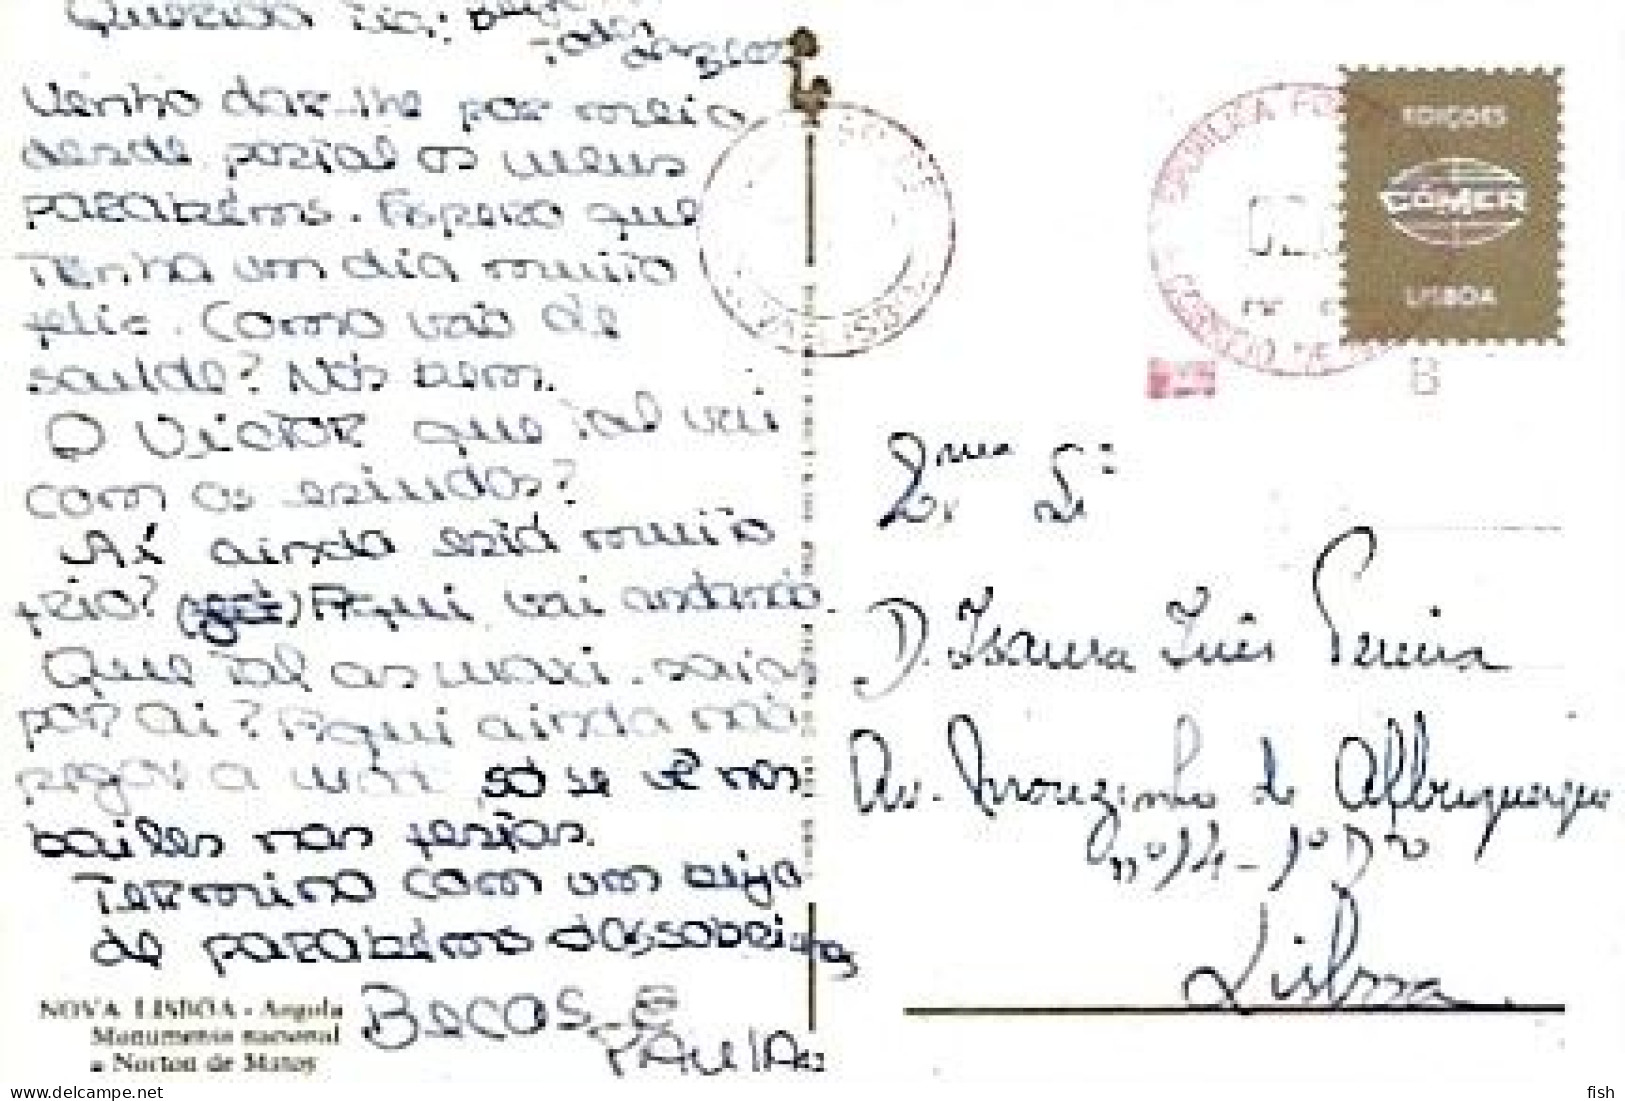 Querida Tia:
Venho dar-lhe por meio
desde postal os meus
parabéns. Espero que
tenha um dia muito
feliz. Como vai de
saúde? Nós bem.
O Victor que tal vai
com os estudos?
Aí ainda está muito
frio? Aqui vai andando.
Que tal as maxi-saias
por ai? Aqui ainda não
pegou a
só se vê nos
bailes nas festas.
Termino com um beijo
de parabéns das sobrinhas
Becas e
Paula
NOVA LISBOA - Angola
Monumento nacional
a Norton de Matos
EDIÇÕES
CÓMER
LISBOA
B
Exma Sr.ª
D. Isaura Inês Pereira
Av. Mouzinho de Albuquerque
nº 14 - 1º Dto
Lisboa
fish